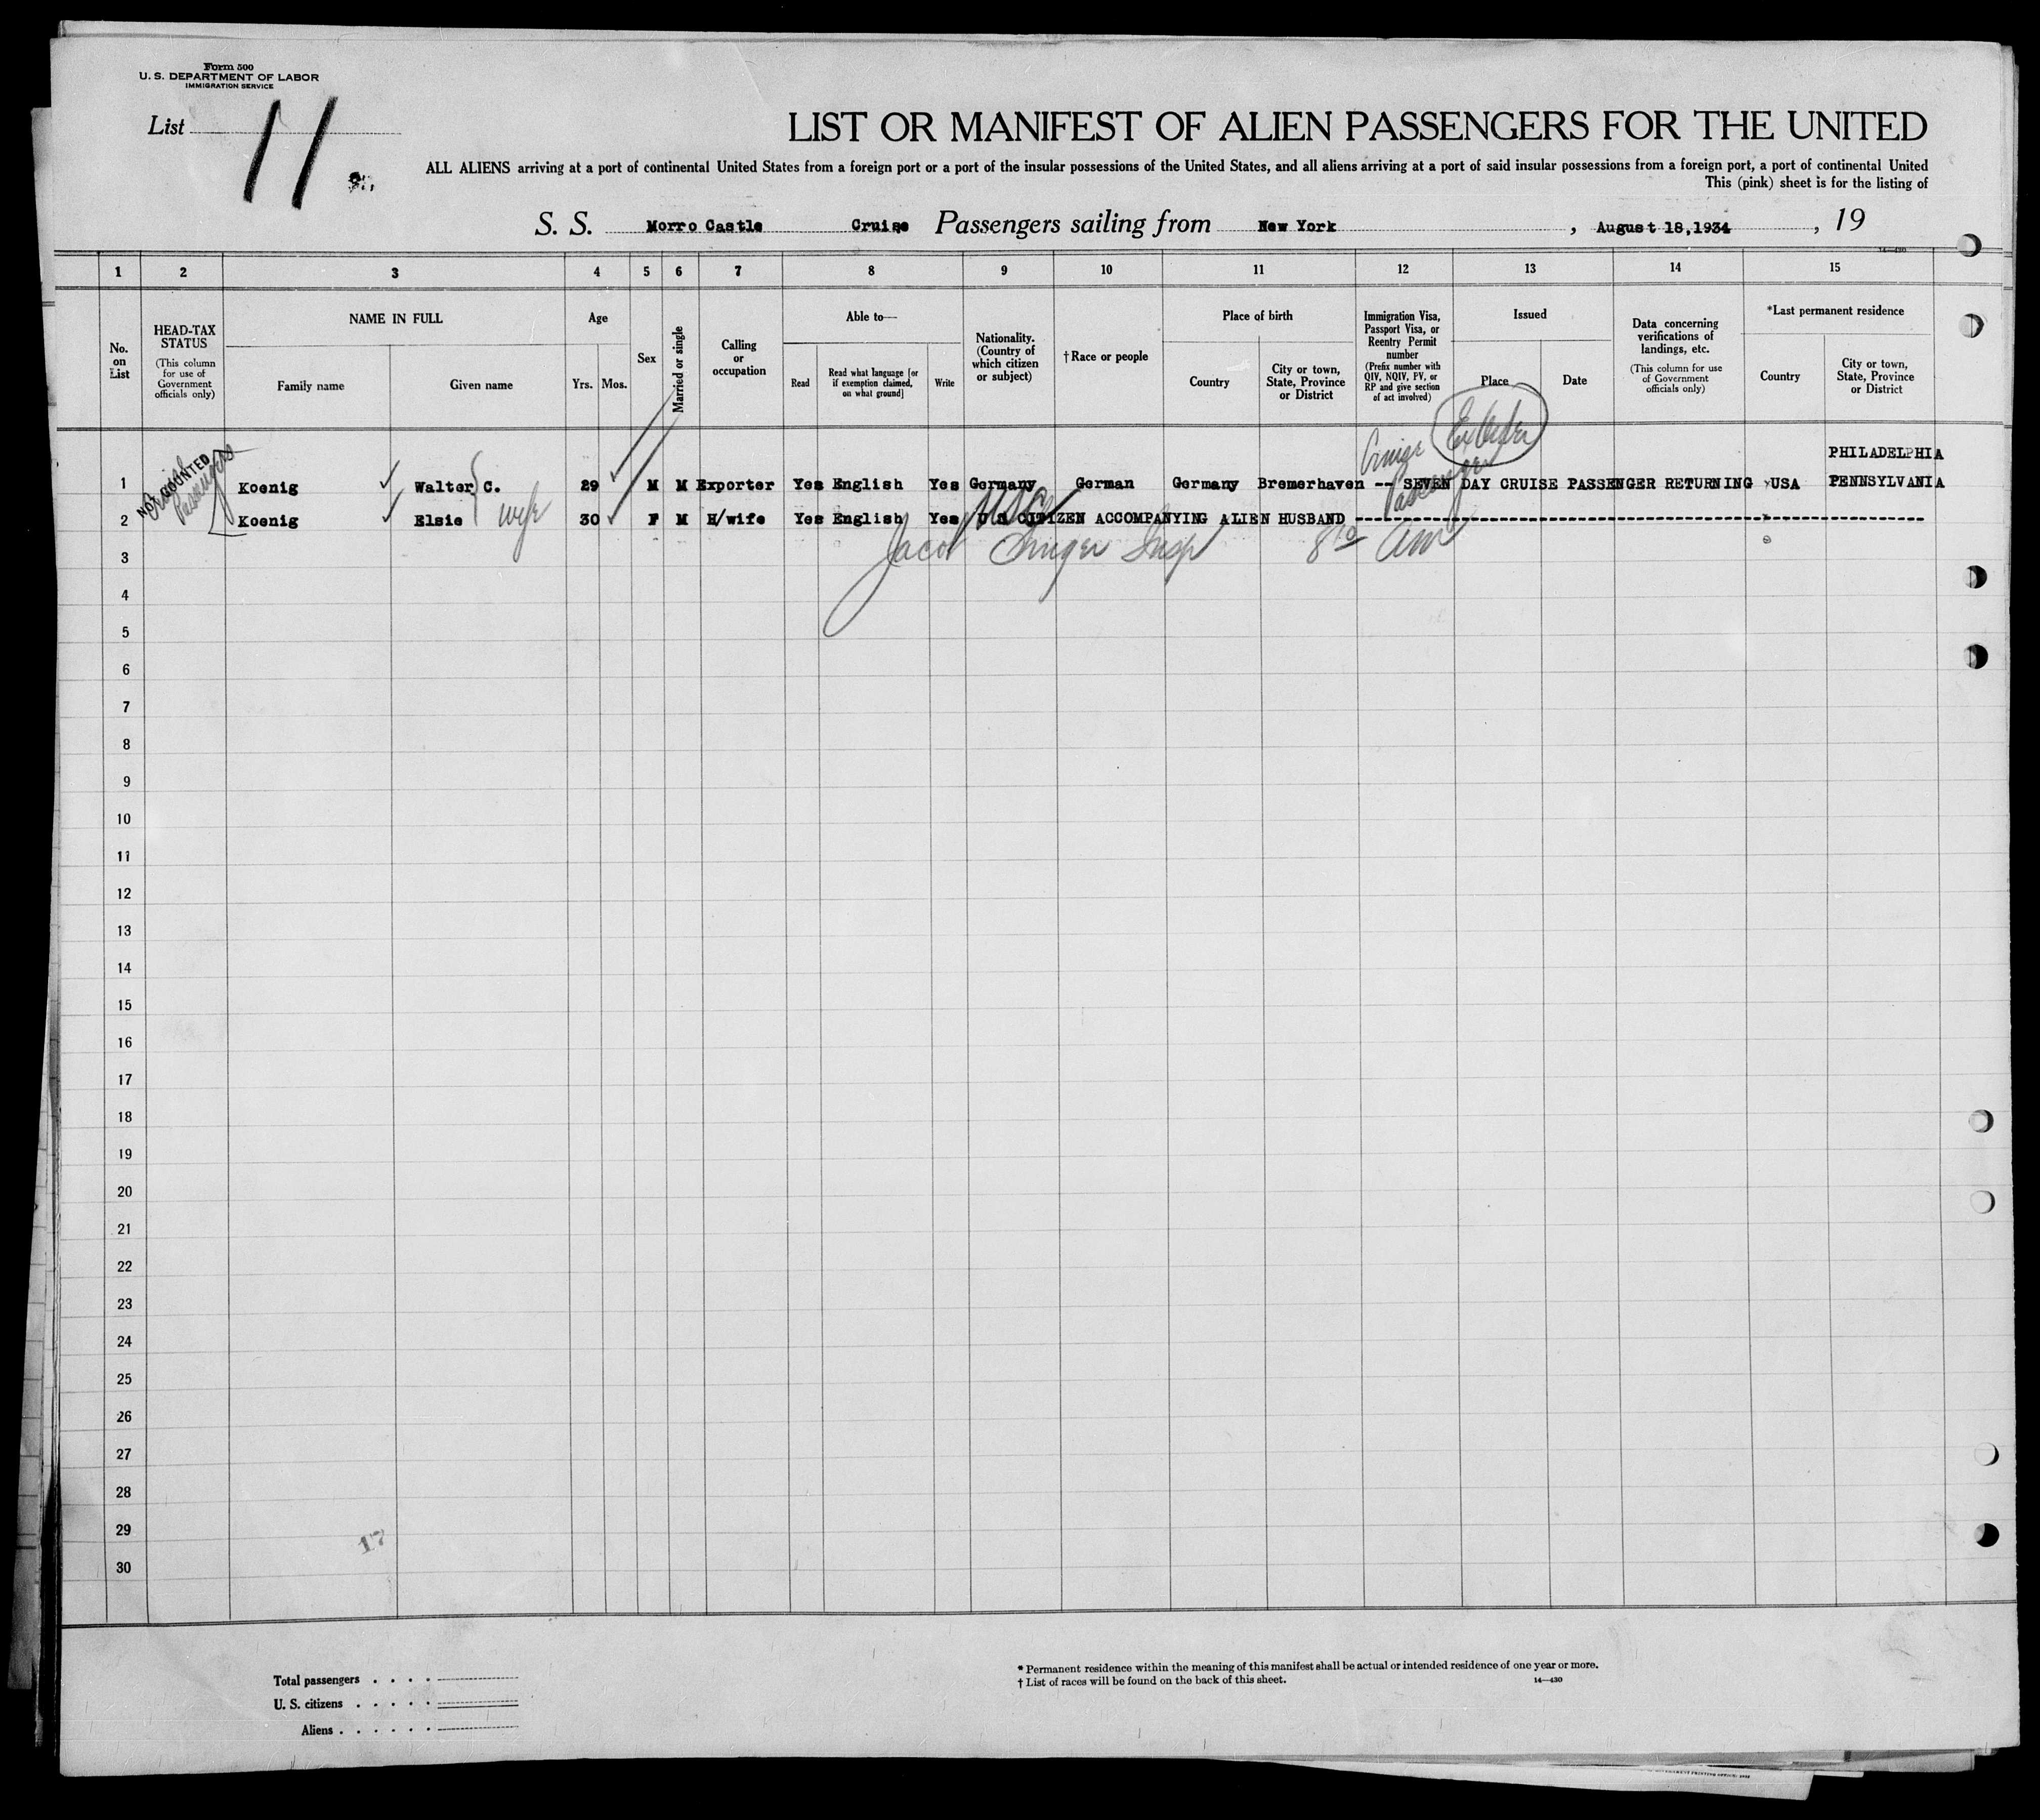 Form 500
U. S. DEPARTMENT OF LABOR
IMMIGRATION SERVICE
List 11
LIST OR MANIFEST OF ALIEN PASSENGERS FOR THE UNITED
ALL ALIENS arriving at a port of continental United States from a foreign port or a port of the insular possessions of the United States, and all aliens arriving at a port of said insular possessions from a foreign port, a port of continental United
This (pink) sheet is for the listing of
S. S. Morro Castle Cruise Passengers sailing from New York , August 18,1934 , 19
14—430
1 2 3 4 5 6 7 8 9 10 11 12 13 14 15
No. on List
HEAD-TAX STATUS
(This column for use of Government officials only)
NAME IN FULL
Family name
Given name
Age
Yrs. Mos.
Sex
Married or single
Calling or occupation
Able to—
Read
Read what language [or if exemption claimed, on what ground]
Write
Nationality. (Country of which citizen or subject)
†Race or people
Place of birth
Country
City or town, State, Province or District
Immigration Visa, Passport Visa, or Reentry Permit number
(Prefix number with QIV, NQIV, PV, or RP and give section of act involved)
Issued
Place
Date
Data concerning verifications of landings, etc.
(This column for use of Government officials only)
*Last permanent residence
Country
City or town, State, Province or District
NOT COUNTED
Cruise Passengers
Cruise Passenger
PHILADELPHIA
1 Koenig Walter C. 29 M M Exporter Yes English Yes Germany German Germany Bremerhaven -- SEVEN DAY CRUISE PASSENGER RETURNING USA PENNSYLVANIA
2 Koenig Elsie wife 30 F M H/wife Yes English Yes U S CITIZEN ACCOMPANYING ALIEN HUSBAND
USC
Jacob Singer Insp 8 10 am
3
4
5
6
7
8
9
10
11
12
13
14
15
16
17
18
19
20
21
22
23
24
25
26
27
28
29
30
17
Total passengers . . . .
U. S. citizens . . . . .
Aliens . . . . . .
* Permanent residence within the meaning of this manifest shall be actual or intended residence of one year or more.
† List of races will be found on the back of this sheet.
14—430